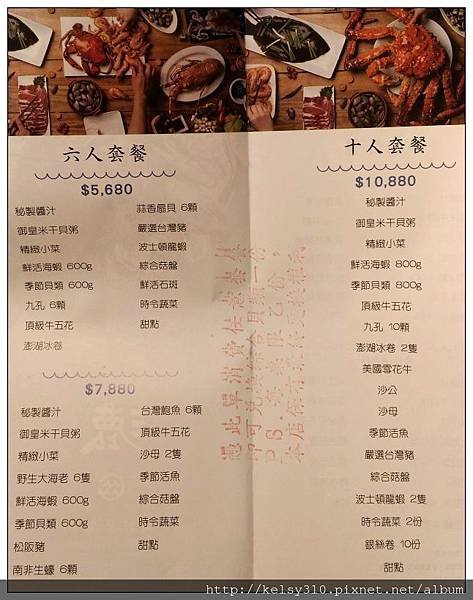 六人套餐
$5,680
秘製醬汁
御皇米干貝粥
精緻小菜
鮮活海蝦 600g
季節貝類 600g
九孔 6顆
頂級牛五花
澎湖冰卷
蒜香扇貝 6顆
嚴選台灣豬
波士頓龍蝦
綜合菇盤
鮮活石斑
時令蔬菜
甜點
$7,880
秘製醬汁
御皇米干貝粥
精緻小菜
野生大海老 6隻
鮮活海蝦 600g
季節貝類 600g
松阪豬
南非生蠔 6顆
台灣鮑魚 6顆
頂級牛五花
沙母 2隻
季節活魚
綜合菇盤
時令蔬菜
甜點
十人套餐
$10,880
秘製醬汁
御皇米干貝粥
精緻小菜
鮮活海蝦 800g
季節貝類 800g
頂級牛五花
九孔 10顆
澎湖冰卷 2隻
美國雪花牛
沙公
沙母
季節活魚
嚴選台灣豬
綜合菇盤
波士頓龍蝦 2隻
時令蔬菜 2份
銀絲卷 10份
甜點
憑此單消費任意套餐
即可兌換綜合貝類一份。
http://kelsy310.pixnet.net/album